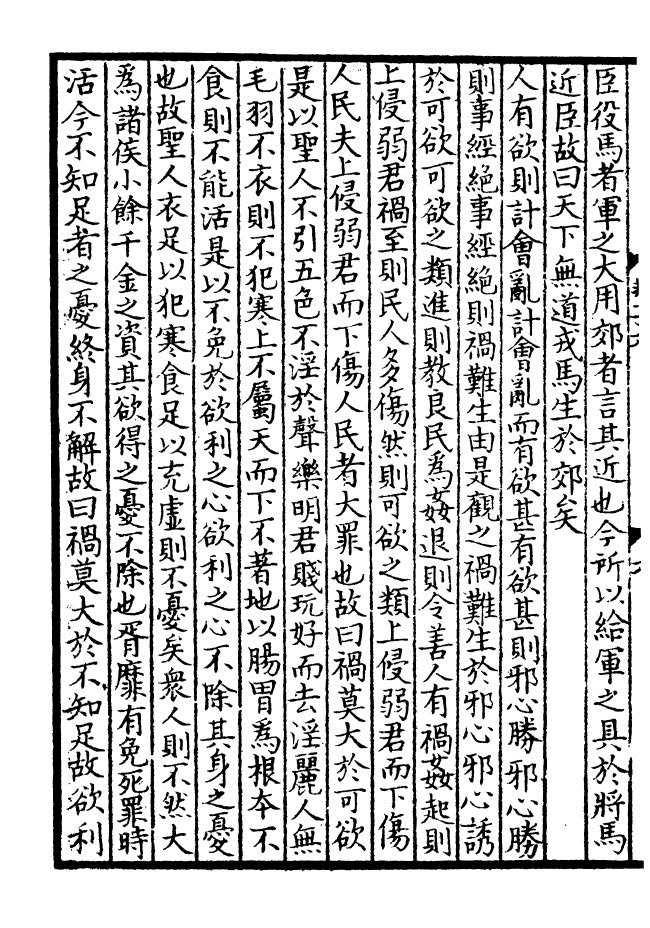 臣役馬者軍之大用郊者言其近也今所以給軍之具於將馬
近臣故曰天下無道戎馬生於郊矣
人有欲則計會亂計會亂而有欲甚有欲甚則邪心勝邪心勝
則事經絕事經絕則禍難生由是觀之禍難生於邪心邪心誘
於可欲可欲之類進則教良民為姦退則令善人有禍姦起則
上侵弱君禍至則民人多傷然則可欲之類上侵弱君而下傷
人民夫上侵弱君而下傷人民者大罪也故曰禍莫大於可欲
是以聖人不引五色不淫於聲樂明君賤玩好而去淫麗人無
毛羽不衣則不犯寒上不屬天而下不著地以腸胃為根本不
食則不能活是以不免於欲利之心欲利之心不除其身之憂
也故聖人衣足以犯寒食足以充虛則不憂矣衆人則不然大
為諸侯小餘千金之資其欲得之憂不除也胥靡有免死罪時
活今不知足者之憂終身不解故曰禍莫大於不知足故欲利